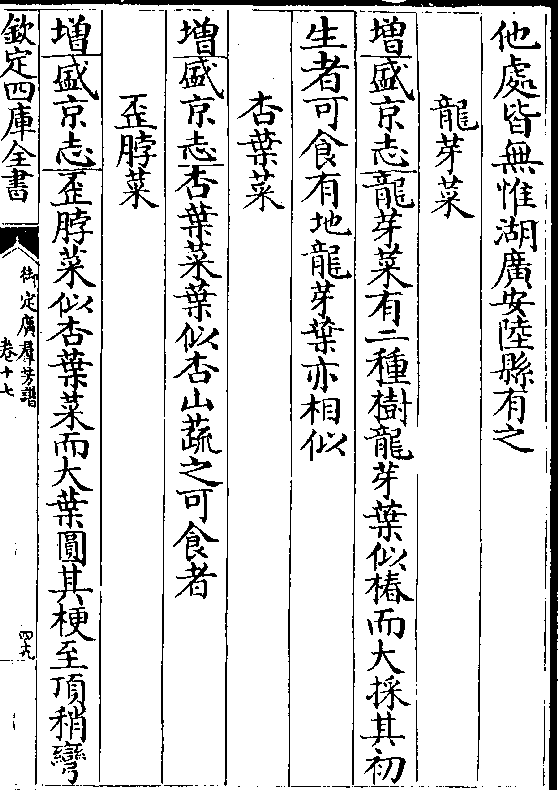 他處皆無惟湖廣安陸縣有之
龍芽菜
增盛京志龍芽菜有二種樹龍芽葉似椿而大採其初
生者可食有地龍芽葉亦相似
杏葉菜
增盛京志杏葉菜葉似杏山蔬之可食者
歪脖菜
增盛京志歪脖菜似杏葉菜而大葉圓其梗至頂稍彎
欽定四庫全書
御定廣羣芳譜
卷十七
四九